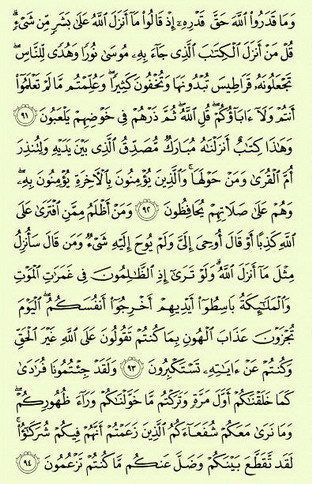 وَمَا قَدَرُوا۟ ٱللَّهَ حَقَّ قَدْرِهِۦٓ إِذْ قَالُوا۟ مَآ أَنزَلَ ٱللَّهُ عَلَىٰ بَشَرٍ مِّن شَىْءٍۗ
قُلْ مَنْ أَنزَلَ ٱلْكِتَـٰبَ ٱلَّذِى جَآءَ بِهِۦ مُوسَىٰ نُورًا وَهُدًى لِّلنَّاسِۖ
تَجْعَلُونَهُۥ قَرَاطِيسَ تُبْدُونَهَا وَتُخْفُونَ كَثِيرًاۖ وَعُلِّمْتُم مَّا لَمْ تَعْلَمُوٓا۟
أَنتُمْ وَلَآ ءَابَآؤُكُمْۖ قُلِ ٱللَّهُۖ ثُمَّ ذَرْهُمْ فِى خَوْضِهِمْ يَلْعَبُونَ ٩١
وَهَـٰذَا كِتَـٰبٌ أَنزَلْنَـٰهُ مُبَارَكٌ مُّصَدِّقُ ٱلَّذِى بَيْنَ يَدَيْهِ وَلِتُنذِرَ
أُمَّ ٱلْقُرَىٰ وَمَنْ حَوْلَهَاۚ وَٱلَّذِينَ يُؤْمِنُونَ بِٱلْـَٔاخِرَةِ يُؤْمِنُونَ بِهِۦۖ
وَهُمْ عَلَىٰ صَلَاتِهِمْ يُحَافِظُونَ ٩٢ وَمَنْ أَظْلَمُ مِمَّنِ ٱفْتَرَىٰ عَلَى
ٱللَّهِ كَذِبًا أَوْ قَالَ أُوحِىَ إِلَىَّ وَلَمْ يُوحَ إِلَيْهِ شَىْءٌ وَمَن قَالَ سَأُنزِلُ
مِثْلَ مَآ أَنزَلَ ٱللَّهُۗ وَلَوْ تَرَىٰٓ إِذِ ٱلظَّـٰلِمُونَ فِى غَمَرَٰتِ ٱلْمَوْتِ
وَٱلْمَلَـٰٓئِكَةُ بَاسِطُوٓا۟ أَيْدِيهِمْ أَخْرِجُوٓا۟ أَنفُسَكُمُۖ ٱلْيَوْمَ
تُجْزَوْنَ عَذَابَ ٱلْهُونِ بِمَا كُنتُمْ تَقُولُونَ عَلَى ٱللَّهِ غَيْرَ ٱلْحَقِّ
وَكُنتُمْ عَنْ ءَايَـٰتِهِۦ تَسْتَكْبِرُونَ ٩٣ وَلَقَدْ جِئْتُمُونَا فُرَٰدَىٰ
كَمَا خَلَقْنَـٰكُمْ أَوَّلَ مَرَّةٍ وَتَرَكْتُم مَّا خَوَّلْنَـٰكُمْ وَرَآءَ ظُهُورِكُمْۖ
وَمَا نَرَىٰ مَعَكُمْ شُفَعَآءَكُمُ ٱلَّذِينَ زَعَمْتُمْ أَنَّهُمْ فِيكُمْ شُرَكَـٰٓؤُا۟ۚ
لَقَد تَّقَطَّعَ بَيْنَكُمْ وَضَلَّ عَنكُم مَّا كُنتُمْ تَزْعُمُونَ ٩٤